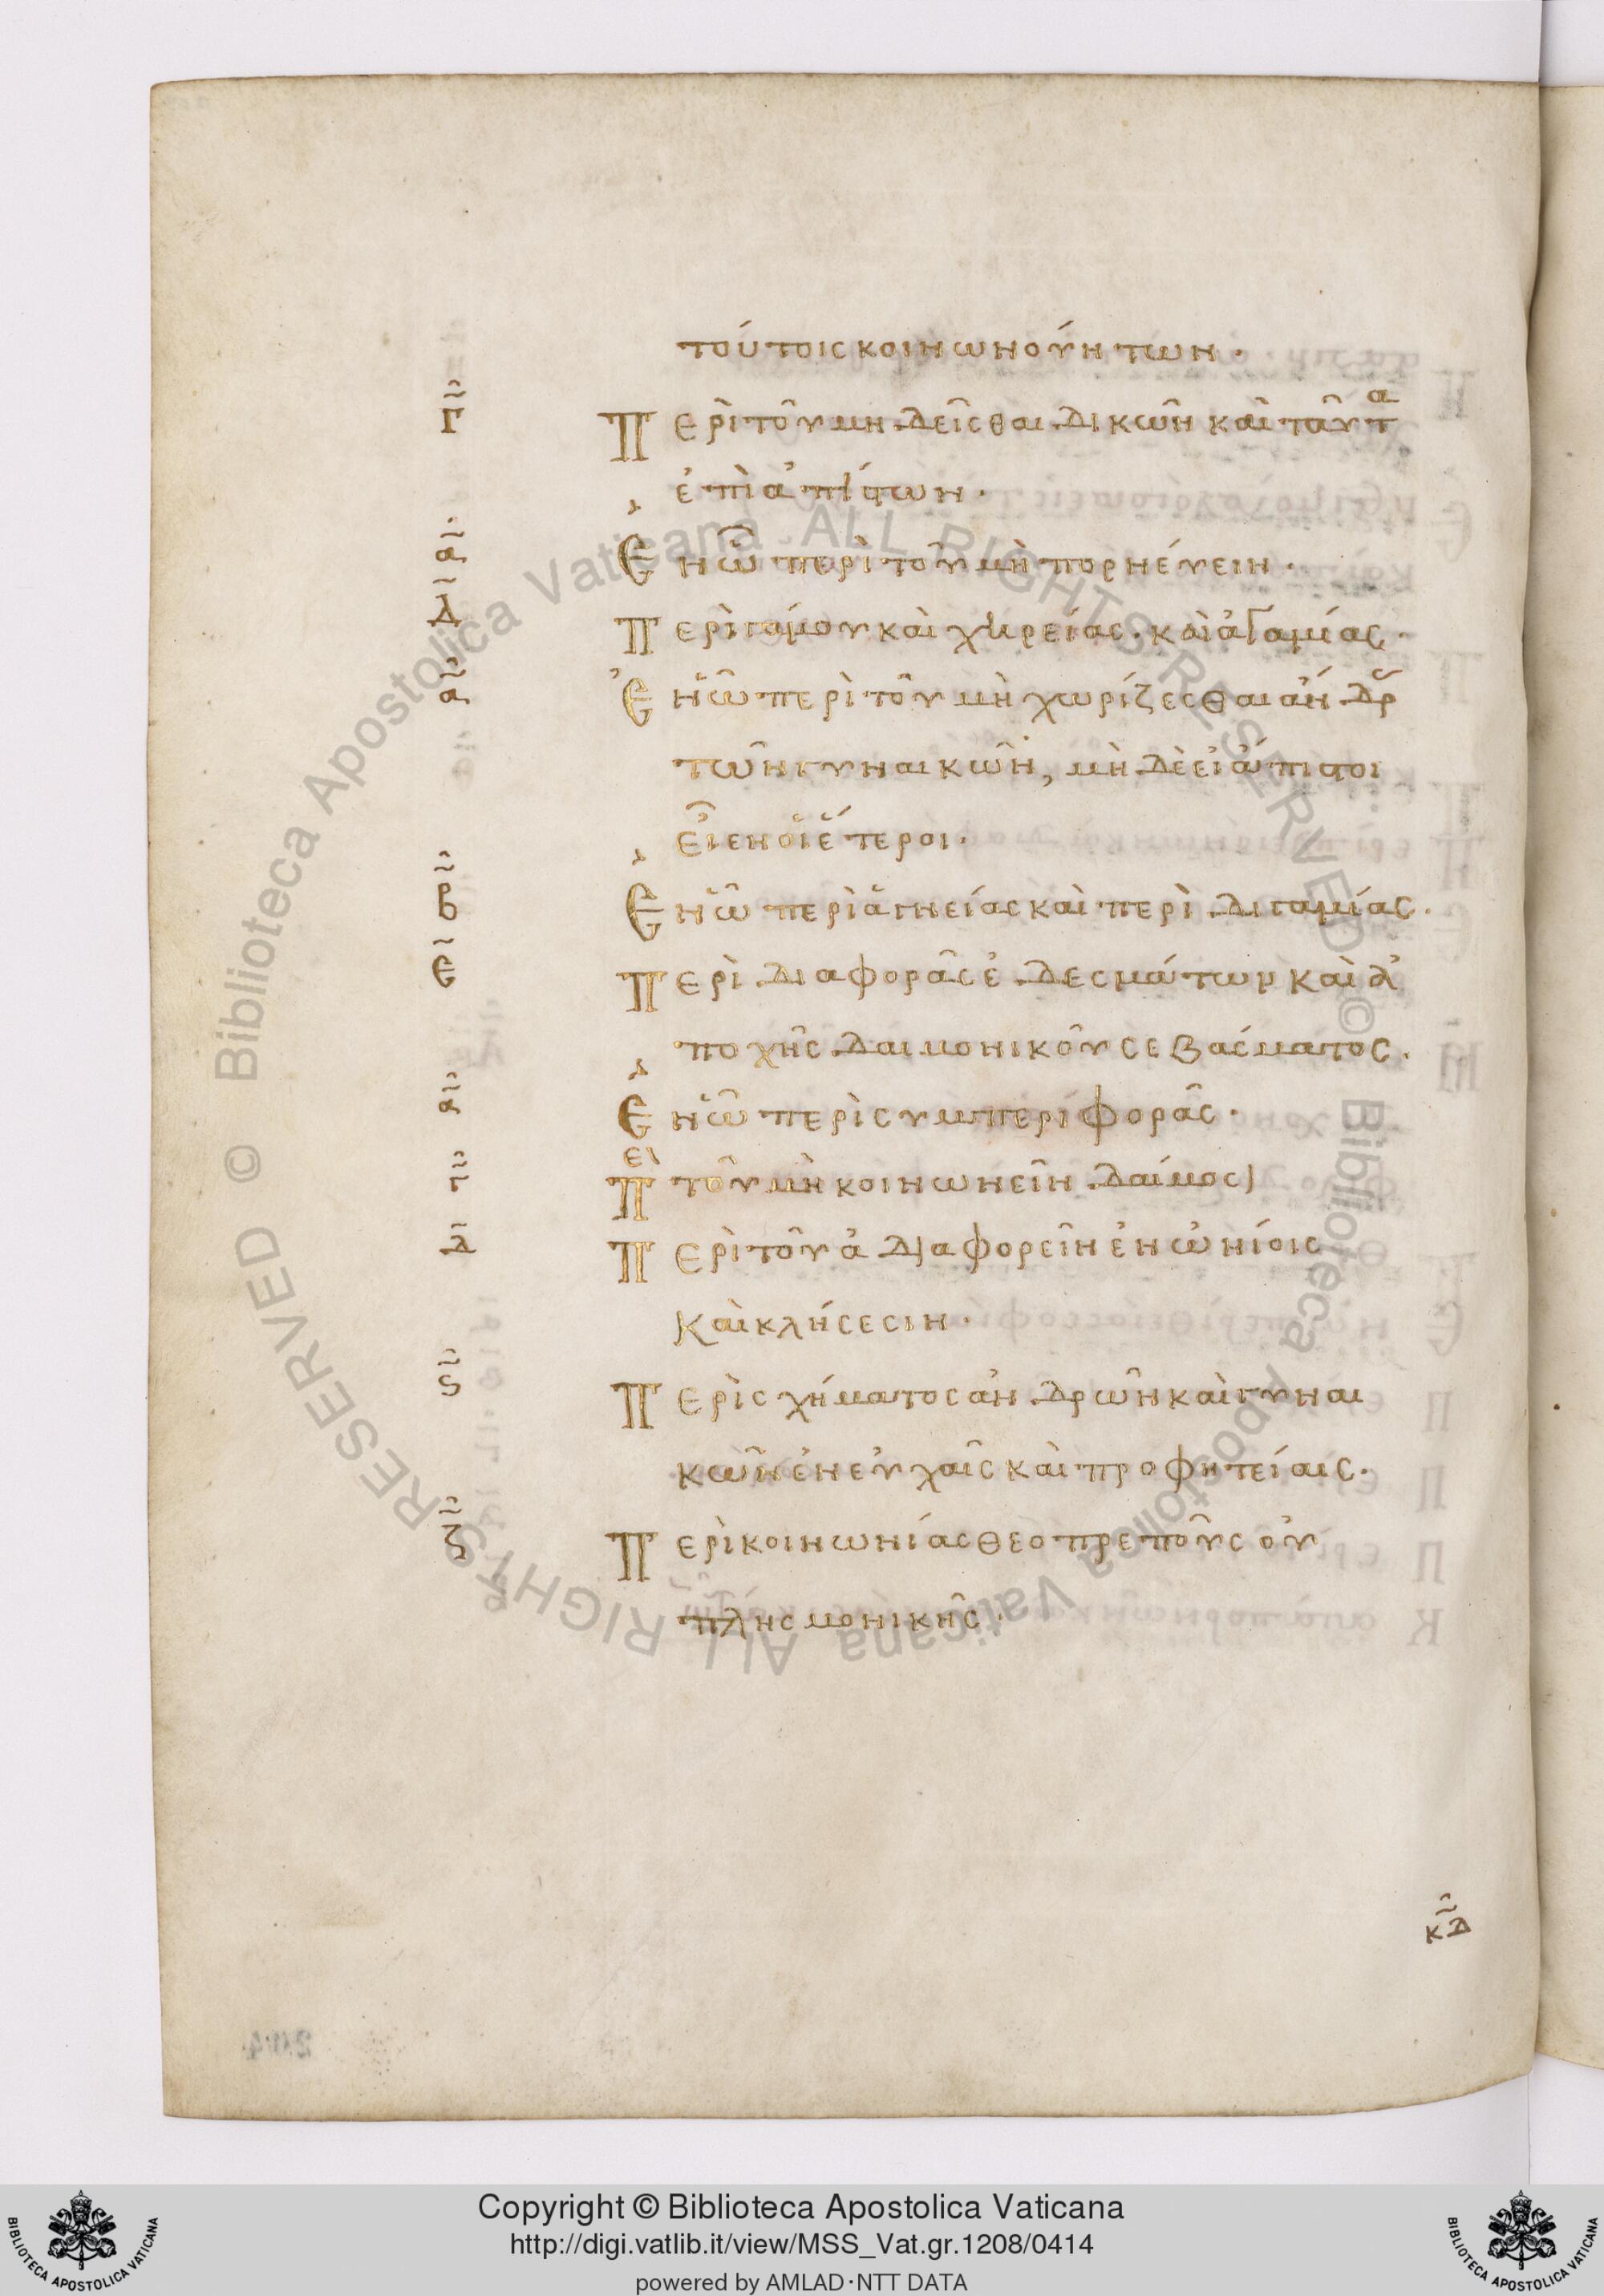 τούτοις κοινωνούντων·
Γ̃ Περὶ τοῦ μὴ δεῖσθαι δικῶν καὶ ταῦτα
ἐπὶ ἀπίστων·
α Ἐν ᾧ περὶ τοῦ μὴ πορνεύειν·
Δ Περὶ γάμου καὶ χηρείας· καὶ ἀγαμίας·
α Ἐν ᾧ περὶ τοῦ μὴ χωρίζεσθαι ἀνδρ
τῶν γυναικῶν, μὴ δὲ εἰ ἄπιστοι
εἶεν οἱ ἕτεροι·
β Ἐν ᾧ περὶ ἁγνείας καὶ περὶ διγαμίας·
Ε Περὶ διαφορᾶς ἐδεσμάτων καὶ ἀ
ποχῆς δαιμονικοῦ σεβάσματος·
α Ἐν ᾧ περὶ συμπεριφορᾶς·
γ Περὶ τοῦ μὴ κοινωνεῖν δαίμοσι
δ Περὶ τοῦ ἀδιαφορεῖν ἐν ὠνίοις
καὶ κλήσεσιν·
ς Περὶ σχήματος ἀνδρῶν καὶ γυναι
κῶν ἐν εὐχαῖς καὶ προφητείαις·
ζ Περὶ κοινωνίας θεοπρεποῦς οὐ
πλησμονικῆς·
κδ
© Biblioteca Apostolica Vaticana ALL RIGHTS RESERVED © Biblioteca Apostolica Vaticana ALL RIGHTS RESERVED
BIBLIOTECA APOSTOLICA VATICANA
Copyright © Biblioteca Apostolica Vaticana
http://digi.vatlib.it/view/MSS_Vat.gr.1208/0414
powered by AMLAD·NTT DATA
BIBLIOTECA APOSTOLICA VATICANA